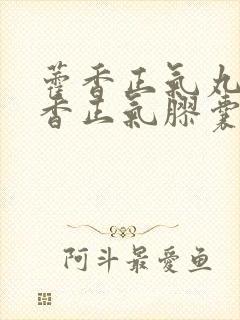 藿香正氣丸
香正氣膠囊
阿斗最愛鱼